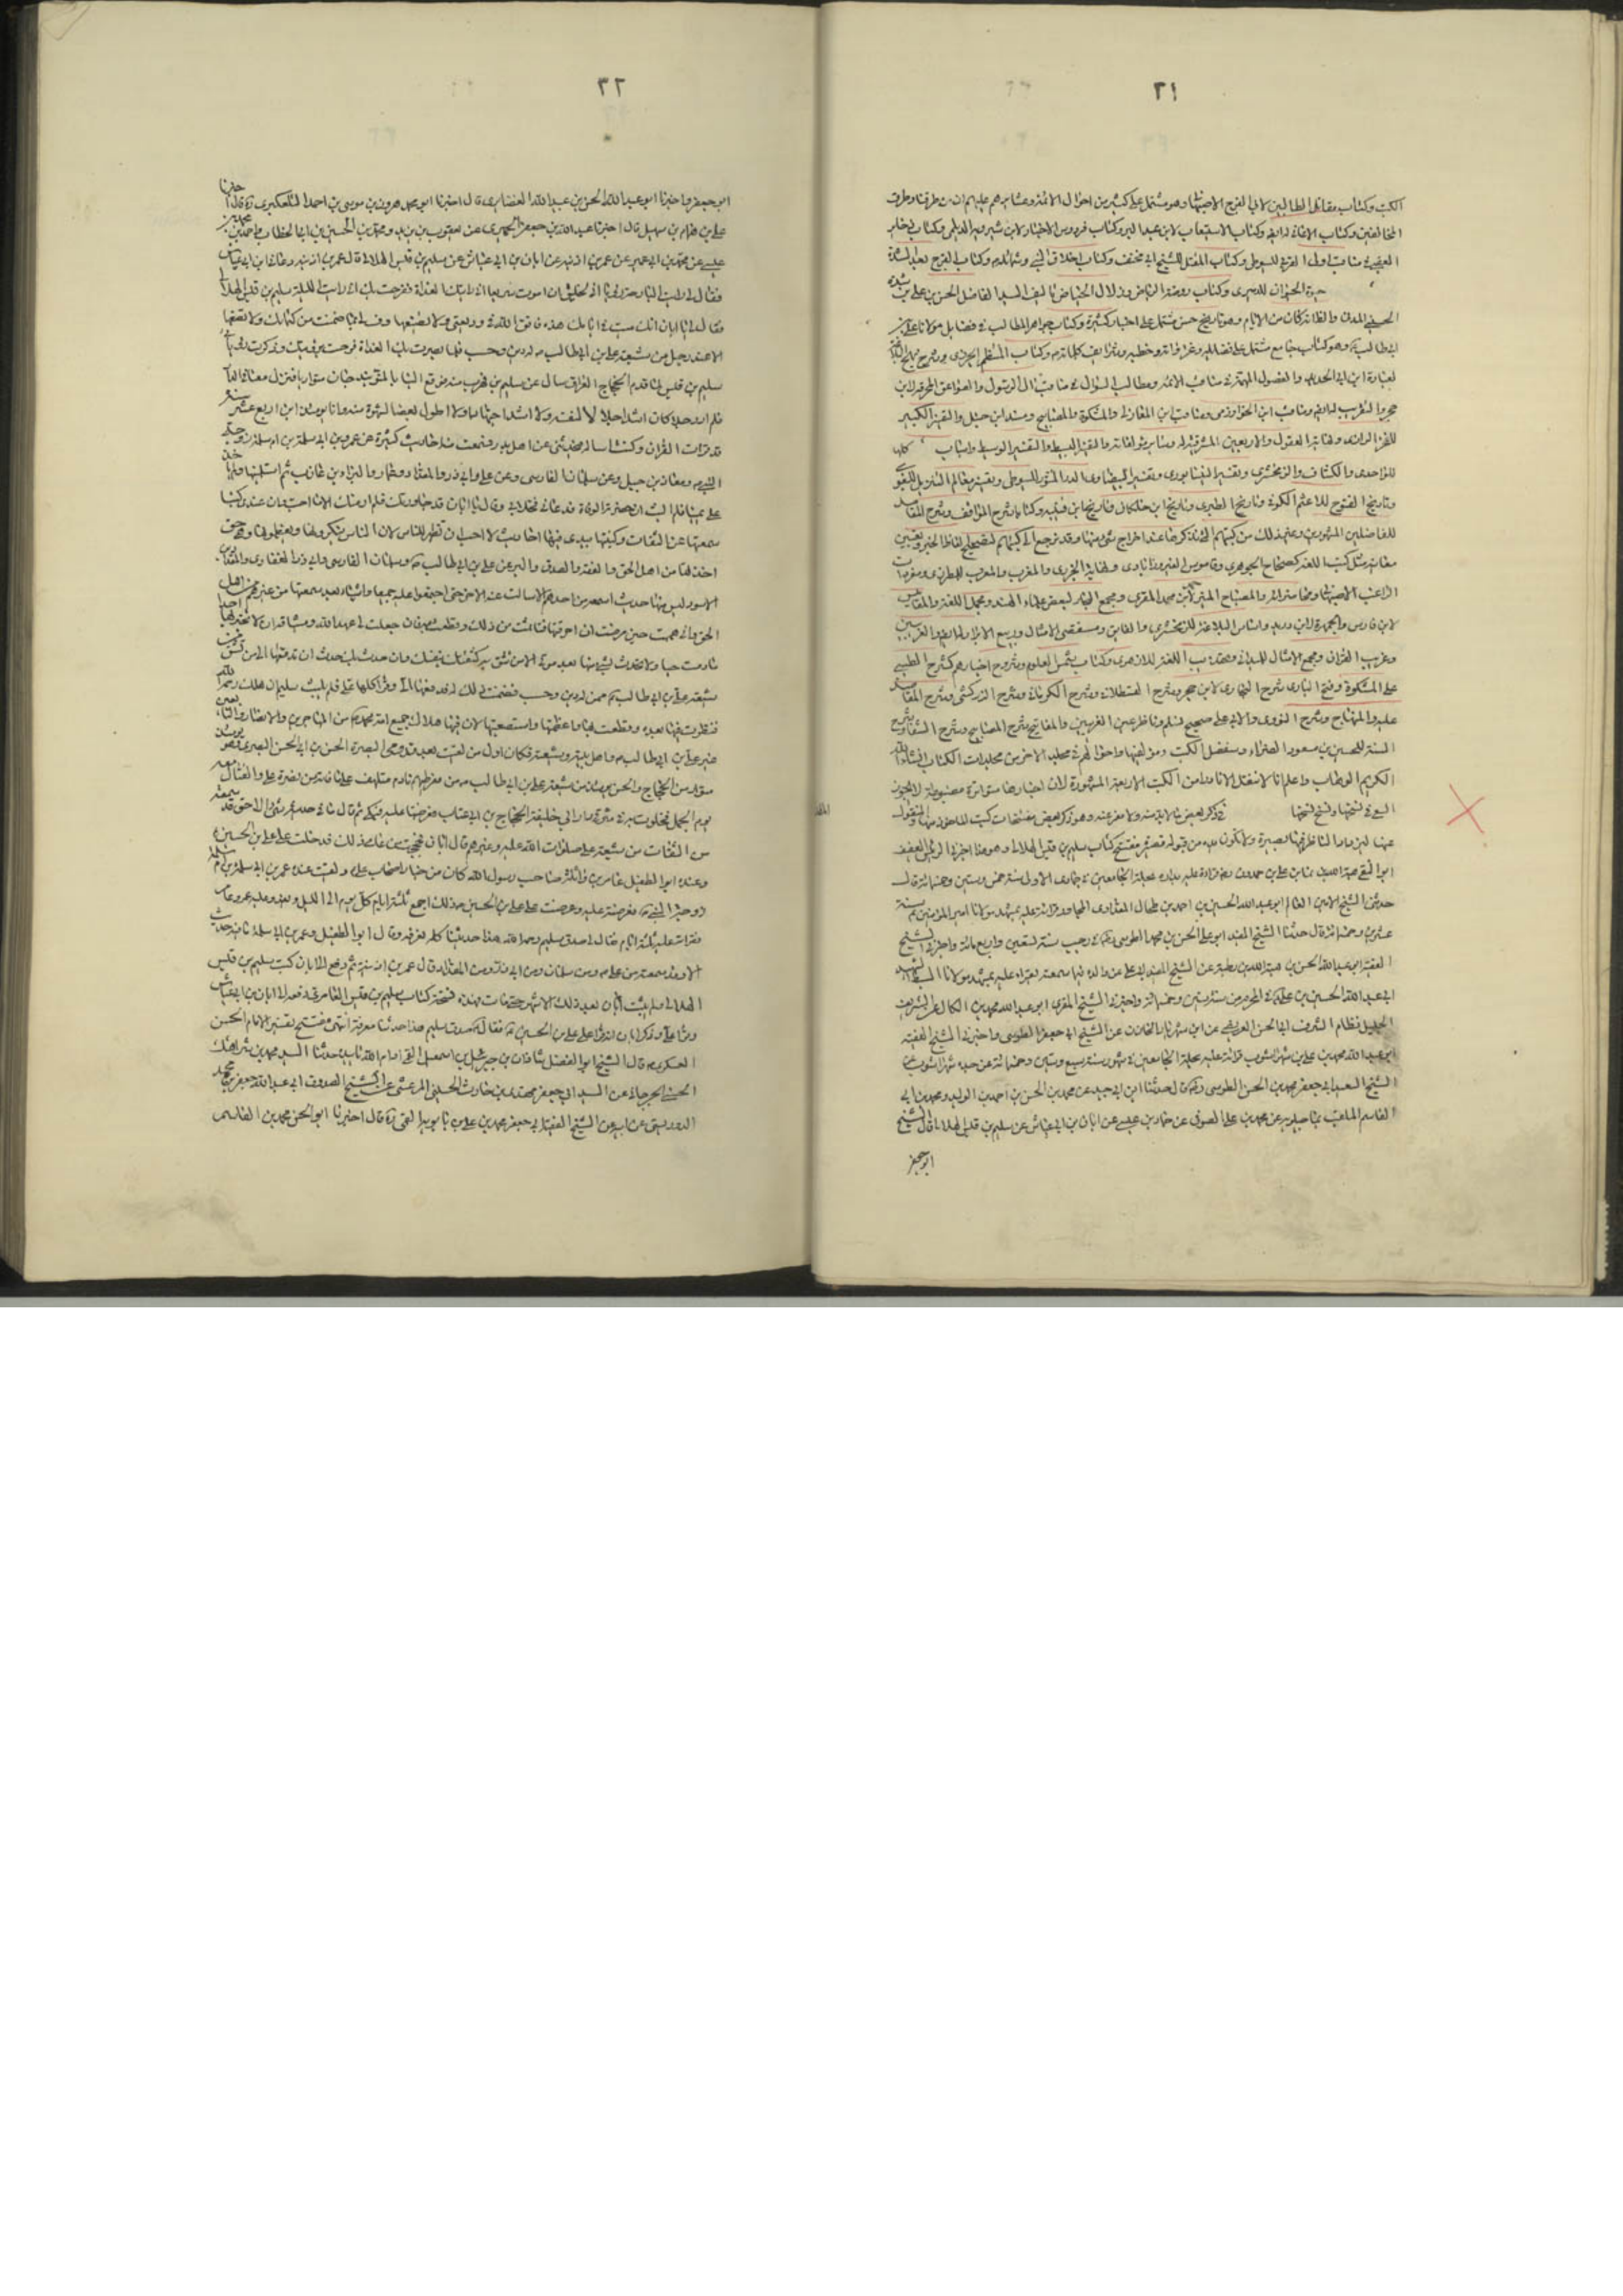 ٣١
الكتب وكتاب مقاتل الطالبين لابي الفرج الاصبهاني وهو مشتمل على كثير من احوال الائمة وعشايرهم عليهم السلام من طرقنا وطرق
المخالفين وكتاب الاغاني له ايضا وكتاب الاستيعاب لابن عبد البر وكتاب فردوس الاخبار لابن شيرويه الديلمي وكتاب
مناقب اولى القربى للسيوطي وكتاب المقتل للشيخ ابي مخنف وكتاب اخلاق النبي وشمائله وكتاب الفرج بعد الشدة
حيوة الحيوان للدميري وكتاب روضة الرياض وزلال الحياض تاليف السيد الفاضل الحسن بن علي بن شدقم
الحسيني المدني والظاهر كان من الامامية وهو تاريخ حسن مشتمل على اخبار كثيرة وكتاب جواهر المطالب في فضايل مولانا علي بن
ابي طالب وهو كتاب جامع مشتمل على فضايله وغزواته وخطبه وشرايف كلماته وكتاب المنتظم لابن الجوزي وشرح نهج البلاغة
لعبد الحميد ابن ابي الحديد والفصول المهمة في مناقب الائمة ومطالب السؤول في مناقب ال الرسول والصواعق المحرقة لابن
حجر والتقريب له ايضا ومناقب ابن الخوارزمي ومناقب ابن المغازلي والمشكوة والمصابيح ومسند ابن حنبل والتفسير الكبير
للفخر الرازي ونهاية العقول والاربعين المشرقية له وساير مؤلفاته والتفسير البسيط والتفسير الوسيط واسباب كلها
للواحدي والكشاف للزمخشري وتفسير النيسابوري وتفسير البيضاوي الدر المنثور للسيوطي وتفسير معالم التنزيل للبغوي
وتاريخ الفتوح للاعثم الكوفي وتاريخ الطبري وتاريخ ابن خلكان وتاريخ ابن قتيبة وكتابا شرح المواقف وشرح المقاصد
للفاضلين المشهورين وغير ذلك من كتبهم التي نذكرها عند اخراج شيء منها وقد نرجع الى كتبهم لتصحيح الفاظ الخبر وتعيين
معانيه مثل كتب اللغة كصحاح الجوهري وقاموس الفيروزابادي ونهاية الجزري والمغرب والمعرب للمطرزي ومفردات
الراغب الاصبهاني ومحاضراته والمصباح المنير لاحمد بن محمد المقري ومجمع البحار لبعض علماء الهند ومجمل اللغة والمقاييس
لابن فارس والجمهرة لابن دريد واساس البلاغة للزمخشري والفايق ومستقصى الامثال وربيع الابرار له ايضا والغريبين
وغريب القران ومجمع الامثال للميداني وتهذيب اللغة للازهري وكتاب شمس العلوم وشروح اخبارهم كشرح الطيبي
على المشكوة وفتح الباري شرح البخاري لابن حجر وشرح القسطلاني وشرح الكرماني وشرح الزركشي وشرح المقاصد
عليه والمنهاج وشرح النووي والابي على صحيح مسلم وناظر عين الغريبين والمفاتيح شرح المصابيح وشرح الشفا وشرح
السنة للحسين بن مسعود الفراء وسنفصل الكتب ومؤلفيها واحوالهم في مجلد الاخر من مجلدات الكتاب ان شاء الله
الكريم الوهاب واعلم انا لا ننقل الا نادرا من الكتب الاربعة المشهورة لان اخبارها متواترة مضبوطة لا يجوز
السعي في نسخها ونسخ نسخها في ذكر بعض ما لابد منه ولا مفر عنه وهو ذكر بعض مفتتحات كتب الماخوذ منها والمنقول
عنها ليزداد الناظر فيها بصيرة ولا يكون فيه من قبوله مفتتح كتاب سليم بن قيس الهلالي وهو هذا اخبرني الرئيس العفيف
ابو البقاء هبة الله بن نما بن علي بن حمدون رضي قراءة عليه بداره بحلة الجامعين في جمادى الاولى سنة خمس وستين وخمسمائة قال
حدثني الشيخ الامين العالم ابو عبد الله الحسين بن احمد بن طحال المقدادي المجاور قراءة عليه بمشهد مولانا امير المؤمنين سنة
عشرين وخمسمائة قال حدثنا الشيخ المفيد ابو علي الحسن بن محمد الطوسي في رجب سنة تسعين واربعمائة واخبرني الشيخ
الفقيه ابو عبد الله الحسن بن هبة الله بن رطبة عن الشيخ المفيد ابي علي عن والده فيما سمعته يقراء عليه بمشهد مولانا السبط الشهيد
ابي عبد الله الحسين بن علي في المحرم من سنة ستين وخمسمائة واخبرني الشيخ المقري ابو عبد الله محمد بن الكال عن الشريف
الجليل نظام الشرف ابي الحسن العريضي عن ابن شهريار الخازن عن الشيخ ابي جعفر الطوسي واخبرني الشيخ الفقيه
ابو عبد الله محمد بن علي بن شهراشوب قراءة عليه بحلة الجامعين في شهور سنة سبع وستين وخمسمائة عن جده شهراشوب عن
الشيخ السعيد ابي جعفر محمد بن الحسن الطوسي قال حدثنا ابن ابي جيد عن محمد بن الحسن بن احمد بن الوليد ومحمد بن ابي
القاسم الملقب بماجيلويه عن محمد بن علي الصيرفي عن حماد بن عيسى عن ابان بن ابي عياش عن سليم بن قيس الهلالي قال الشيخ
ابو جعفر
٣٢
ابو جعفر واخبرنا ابو عبد الله الحسين بن عبيد الله الغضايري قال اخبرنا ابو محمد هرون بن موسى بن احمد التلعكبري ره قال اخبرنا
علي بن همام بن سهيل قال اخبرنا عبد الله بن جعفر الحميري عن يعقوب بن يزيد ومحمد بن الحسين بن ابي الخطاب واحمد بن محمد بن
عيسى عن محمد بن ابي عمير عن عمر بن اذينة عن ابان بن ابي عياش عن سليم بن قيس الهلالي قال عمر بن اذينة دعاني ابن ابي عياش
فقال لي رايت البارحة رؤيا اني لخليق ان اموت سريعا اني رايتك الغداة ففرحت بك اني رايت الليلة سليم بن قيس الهلالي
فقال لي يا ابان انك ميت في ايامك هذه فاتق الله في وديعتي ولا تضيعها وف لي بما ضمنت من كتمانك ولا تضعها
الا عند رجل من شيعة علي بن ابي طالب له دين وحسب فلما بصرت بك الغداة فرحت برؤيتك وذكرت رؤياي
سليم بن قيس لما قدم الحجاج العراق سال عن سليم بن قيس فهرب منه فوقع الينا بالنوبندجان متواريا فنزل معنا في الدار
فلم ار رجلا كان اشد اجلالا لنفسه ولا اشد اجتهادا ولا اطول بغضا للشهرة منه وانا يومئذ ابن اربع عشر سنة
قد قرات القران وكنت اساله فيحدثني عن اهل بدر فسمعت منه احاديث كثيرة عن عمر بن ابي سلمة بن ام سلمة زوجة
النبي ومعاذ بن جبل وعن سلمان الفارسي وعن علي وابي ذر والمقداد وعمار والبراء بن عازب ثم استكتمنيها ولم ياخذ
علي يمينا فلم البث ان حضرته الوفاة فدعاني فخلا بي وقال يا ابان قد جاورتك فلم ار منك الا ما احب وان عندي كتبا
سمعتها عن الثقات وكتبتها بيدي فيها احاديث لا احب ان تظهر للناس لان الناس ينكرونها ويعظمونها وهي حق
اخذتها من اهل الحق والفقه والصدق والبر عن علي بن ابي طالب وسلمان الفارسي وابي ذر الغفاري والمقداد بن
الاسود ليس منها حديث اسمعه من احدهم الا سالت عنه الاخر حتى اجتمعوا عليه جميعا واشياء بعد سمعتها من غيرهم من اهل
الحق واني هممت حين مرضت ان احرقها فتاثمت من ذلك وقطعت به فان جعلت لي عهد الله وميثاقه ان لا تخبر بها احدا
ما دمت حيا ولا تحدث بشيء منها بعد موتي الا من تثق به كثقتك بنفسك وان حدث بك حدث ان تدفعها الى من تثق به من
شيعة علي بن ابي طالب ممن له دين وحسب فضمنت ذلك له فدفعها الي وقرأ كلها علي فلم يلبث سليم ان هلك رحمه الله
فنظرت فيها بعده وقطعت بها واعظمتها واستصعبتها لان فيها هلاك جميع امة محمد من المهاجرين والانصار والتابعين
غير علي بن ابي طالب واهل بيته وشيعته فكان اول من لقيت بعد قدومي البصرة الحسن بن ابي الحسن البصري وهو يومئذ
متوار من الحجاج والحسن يومئذ من شيعة علي بن ابي طالب من مفرطيهم نادم متلهف على ما فاته من نصرة علي والقتال معه
يوم الجمل فخلوت به في شرقي دار ابي خليفة الحجاج بن ابي عتاب فعرضتها عليه فبكى ثم قال ما في حديثه شيء الا حق قد سمعته
من الثقات من شيعة علي صلوات الله عليه وغيرهم قال ابان فحججت من عامي ذلك فدخلت على علي بن الحسين
وعنده ابو الطفيل عامر بن واثلة صاحب رسول الله كان من خيار اصحاب علي ولقيت عنده عمر بن ابي سلمة بن ام سلمة
زوجة النبي فعرضته عليه وعرضت على علي بن الحسين ذلك اجمع ثلثة ايام كل يوم الى الليل ويغدو عليه عمرو عامر
فقراته عليه ثلثة ايام فقال لي صدق سليم رحمه الله هذا حديثنا كله نعرفه وقال ابو الطفيل وعمر بن ابي سلمة ما فيه حديث
الا وقد سمعته من علي ومن سلمان ومن ابي ذر ومن المقداد قال عمر بن اذينة ثم دفع الي ابان كتب سليم بن قيس
الهلالي ولم يلبث ابان بعد ذلك الا شهر حتى مات فهذه نسخة كتاب سليم بن قيس العامري دفعه الي ابان بن ابي عياش
وقرأه علي وذكر ابان انه قرأ على علي بن الحسين فقال صدق سليم هذا حديثنا نعرفه انتهى مفتتح تفسير الامام الحسن
العسكري قال الشيخ ابو الفضل شاذان بن جبرئيل بن اسمعيل القمي ادام الله تاييده حدثنا السيد محمد بن شراهتك
الحسيني الجرجاني عن السيد ابي جعفر مهتدي بن حارث الحسيني المرعشي عن الشيخ الصدوق ابي عبد الله جعفر بن محمد
الدوريستي عن ابيه عن الشيخ الفقيه ابي جعفر محمد بن علي بن بابويه القمي ره قال اخبرنا ابو الحسن محمد بن القاسم